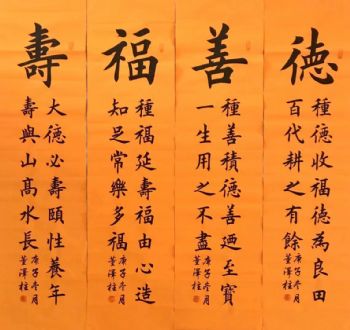 德
種德收福德為良田
百代耕之有餘
庚子冬月
董澤柱
善
種善積德善迺至寶
一生用之不盡
庚子冬月
董澤柱
福
種福延壽福由心造
知足常樂多福
庚子冬月
董澤柱
壽
大德必壽頤性養年
壽與山髙水長
庚子冬月
董澤柱